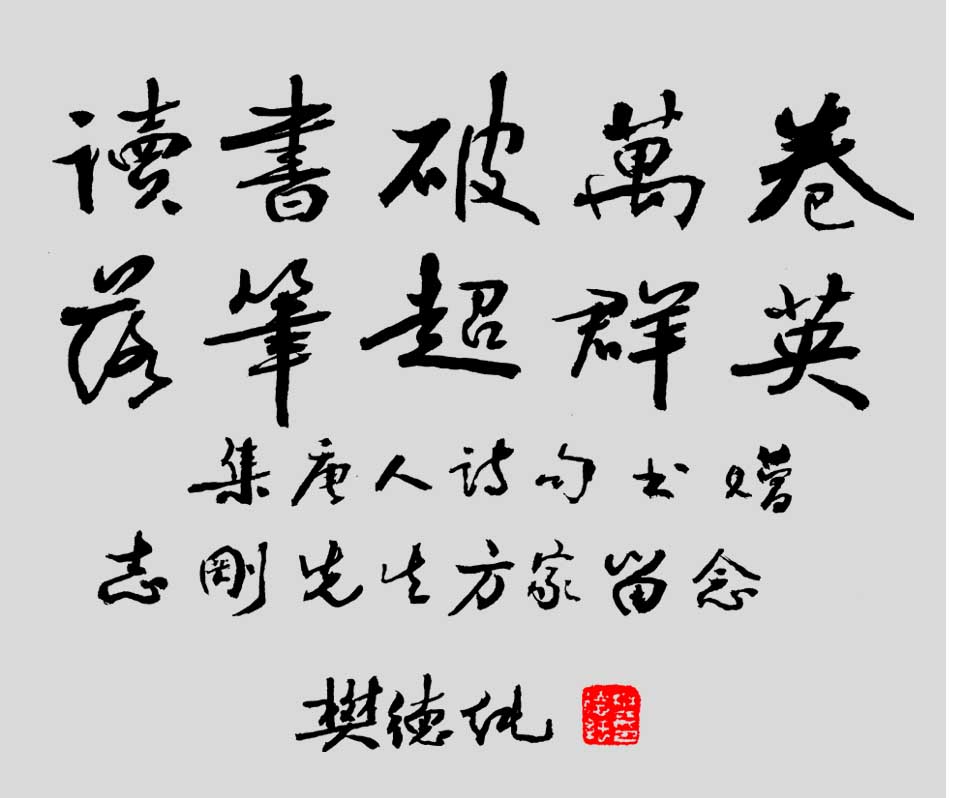 读書破萬卷
落筆超群英
集唐人诗句书赠
志剛先生方家留念
樊德